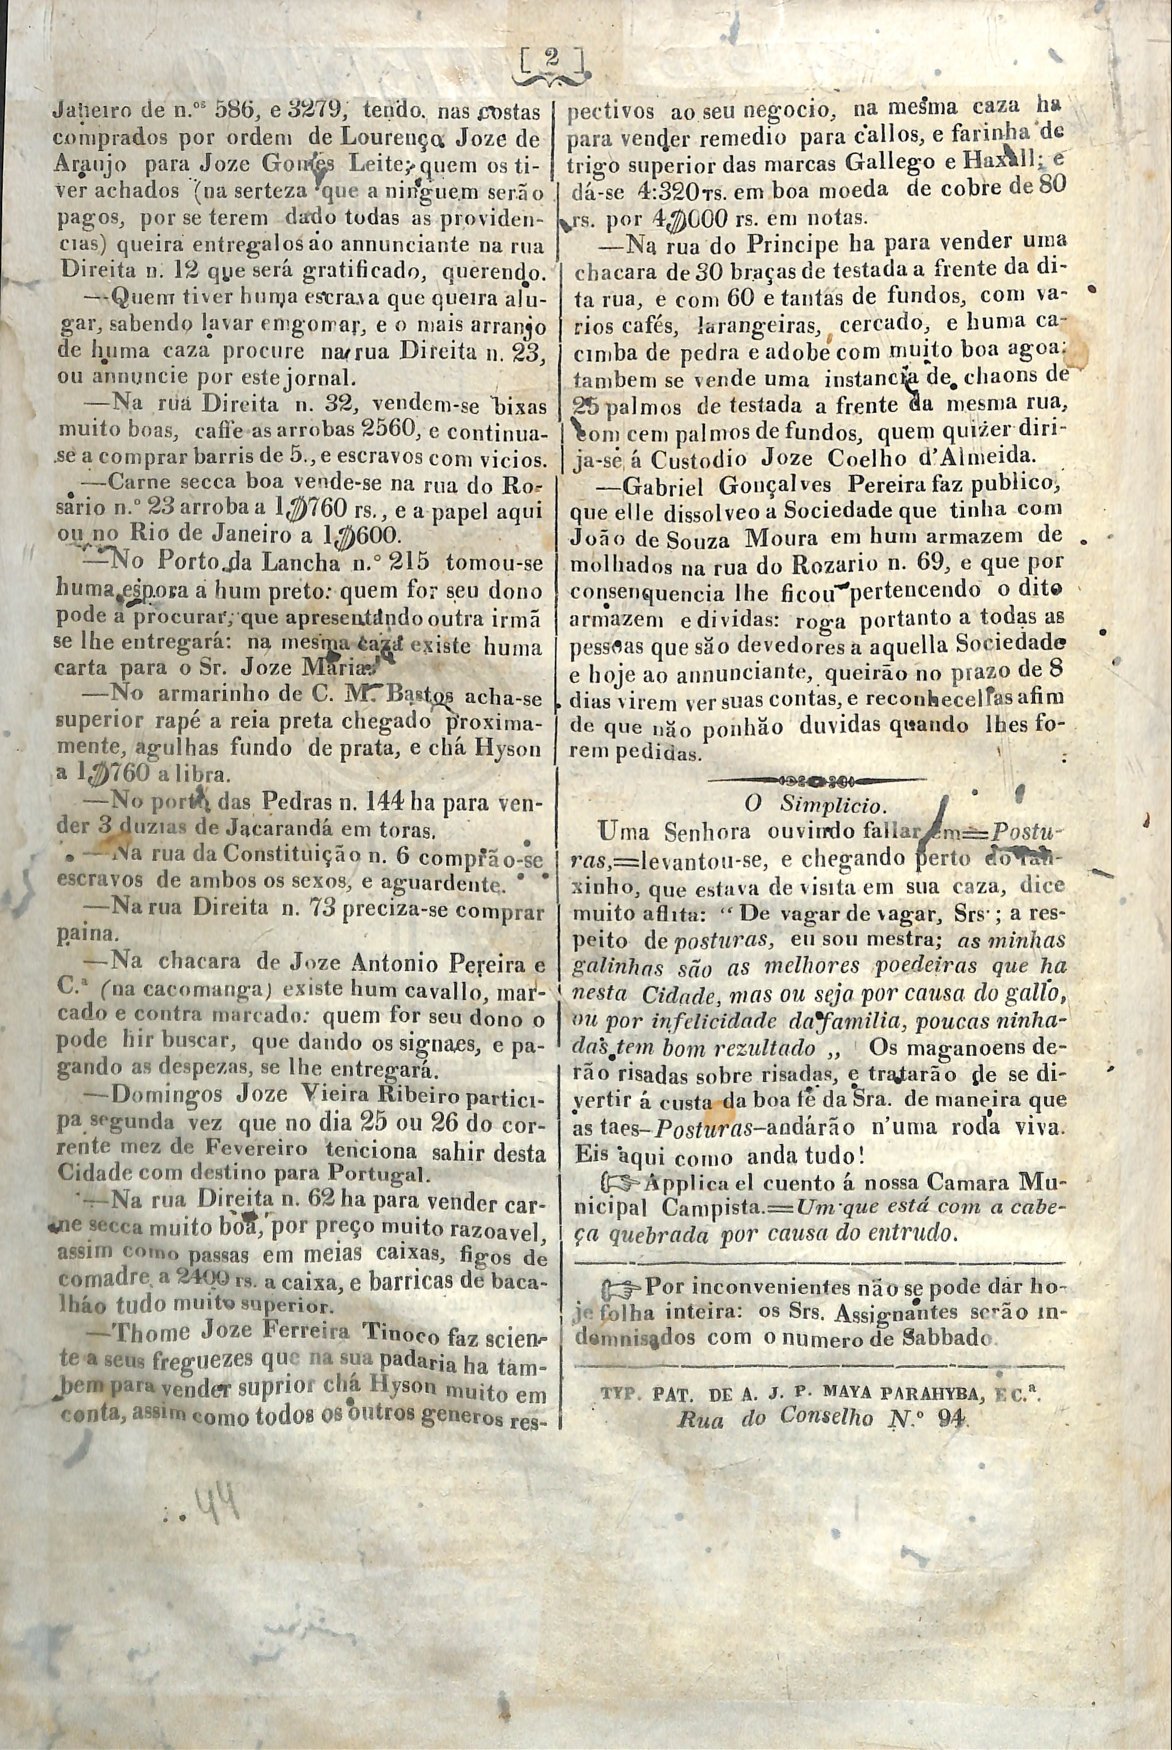 [ 2 ]
Janeiro de n.os 586, e 3279, tendo. nas costas
comprados por ordem de Lourenço Joze de
Araujo para Joze Gomes Leite; quem os ti-
ver achados (na serteza que a ninguem serão
pagos, por se terem dado todas as providen-
cias) queira entregalos ao annunciante na rua
Direita n. 12 que será gratificado, querendo.
—Quem tiver huma escrava que queira alu-
gar, sabendo lavar emgomar, e o mais arranjo
de huma caza procure na rua Direita n. 23,
ou annuncie por este jornal.
—Na rua Direita n. 32, vendem-se bixas
muito boas, caffe as arrobas 2560, e continua-
se a comprar barris de 5., e escravos com vicios.
—Carne secca boa vende-se na rua do Ro-
sario n.º 23 arroba a 1$760 rs., e a papel aqui
ou no Rio de Janeiro a 1$600.
—No Porto da Lancha n.º 215 tomou-se
huma espora a hum preto: quem for seu dono
pode a procurar, que apresentando outra irmã
se lhe entregará: na mesma caza existe huma
carta para o Sr. Joze Maria
—No armarinho de C. M. Bastos acha-se
superior rapé a reia preta chegado proxima-
mente, agulhas fundo de prata, e chá Hyson
a 1$760 a libra.
—No porto das Pedras n. 144 ha para ven-
der 3 duzias de Jacarandá em toras.
—Na rua da Constituição n. 6 comprão-se
escravos de ambos os sexos, e aguardente.
—Na rua Direita n. 73 preciza-se comprar
paina.
—Na chacara de Joze Antonio Pereira e
C.ª (na cacomanga) existe hum cavallo, mar-
cado e contra marcado: quem for seu dono o
pode hir buscar, que dando os signaes, e pa-
gando as despezas, se lhe entregará.
—Domingos Joze Vieira Ribeiro partici-
pa segunda vez que no dia 25 ou 26 do cor-
rente mez de Fevereiro tenciona sahir desta
Cidade com destino para Portugal.
—Na rua Direita n. 62 ha para vender car-
ne secca muito boa, por preço muito razoavel,
assim como passas em meias caixas, figos de
comadre a 2400 rs. a caixa, e barricas de baca-
lháo tudo muito superior.
—Thome Joze Ferreira Tinoco faz scien-
te a seus freguezes que na sua padaria ha tam-
bem para vender suprior chá Hyson muito em
conta, assim como todos os outros generos res-
pectivos ao seu negocio, na mesma caza ha
para vender remedio para callos, e farinha de
trigo superior das marcas Gallego e Haxall; e
dá-se 4:320 rs. em boa moeda de cobre de 80
rs. por 4$000 rs. em notas.
—Na rua do Principe ha para vender uma
chacara de 30 braças de testada a frente da di-
ta rua, e com 60 e tantas de fundos, com va-
rios cafés, larangeiras, cercado, e huma ca-
cimba de pedra e adobe com muito boa agoa:
tambem se vende uma instancia de chaons de
25 palmos de testada a frente da mesma rua,
com cem palmos de fundos, quem quizer diri-
ja-se á Custodio Joze Coelho d'Almeida.
—Gabriel Gonçalves Pereira faz publico,
que elle dissolveo a Sociedade que tinha com
João de Souza Moura em hum armazem de
molhados na rua do Rozario n. 69, e que por
consenquencia lhe ficou pertencendo o dito
armazem e dividas: roga portanto a todas as
pessoas que são devedores a aquella Sociedade
e hoje ao annunciante, queirão no prazo de 8
dias virem ver suas contas, e reconhecellas afim
de que não ponhão duvidas quando lhes fo-
rem pedidas.
O Simplicio.
Uma Senhora ouvindo fallar em=Postu-
ras,=levantou-se, e chegando perto do
xinho, que estava de visita em sua caza, dice
muito aflita: "De vagar de vagar, Srs.; a res-
peito de posturas, eu sou mestra; as minhas
galinhas são as melhores poedeiras que ha
nesta Cidade, mas ou seja por causa do gallo,
ou por infelicidade da familia, poucas ninha-
das tem bom rezultado ,, Os maganoens de-
rão risadas sobre risadas, e tratarão de se di-
vertir á custa da boa fé da Sra. de maneira que
as taes-Posturas-andárão n'uma roda viva.
Eis aqui como anda tudo!
☞Applica el cuento á nossa Camara Mu-
nicipal Campista.=Um que está com a cabe-
ça quebrada por causa do entrudo.
☞Por inconvenientes não se pode dar ho-
je folha inteira: os Srs. Assignantes serão in-
demnisados com o numero de Sabbado.
TYP. PAT. DE A. J. P. MAYA PARAHYBA, E C.ª.
Rua do Conselho N.º 94.
44